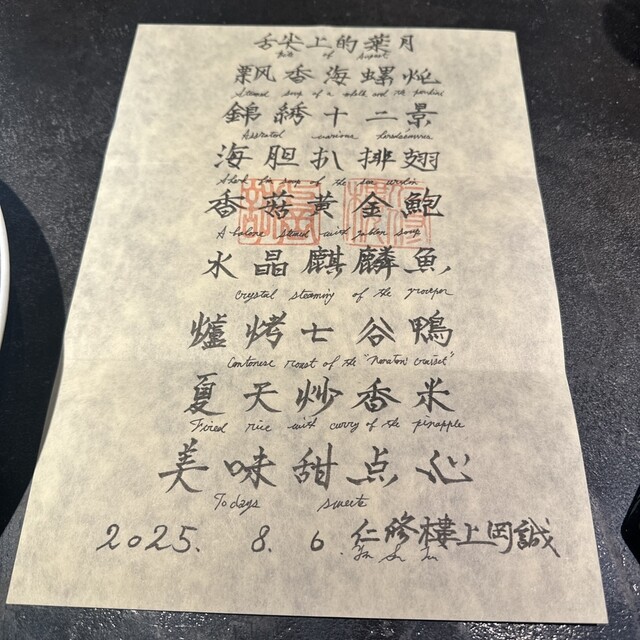 舌尖上的葉月
of August
飄香海螺炖
Steamed soup of a whelk and
錦綉十二景
Assorted various
海胆扒排翅
Shark fin soup of the sea urchin
香菇黄金鮑
Abalone steack with golden soup
水晶麒麟魚
Crystal steaming of the grouper
爐烤七谷鴨
Cantonese roast of the
夏天炒香米
Fried rice with curry of the pineapple
美味甜点心
Todays sweets
2025. 8. 6. 仁修樓上岡誠